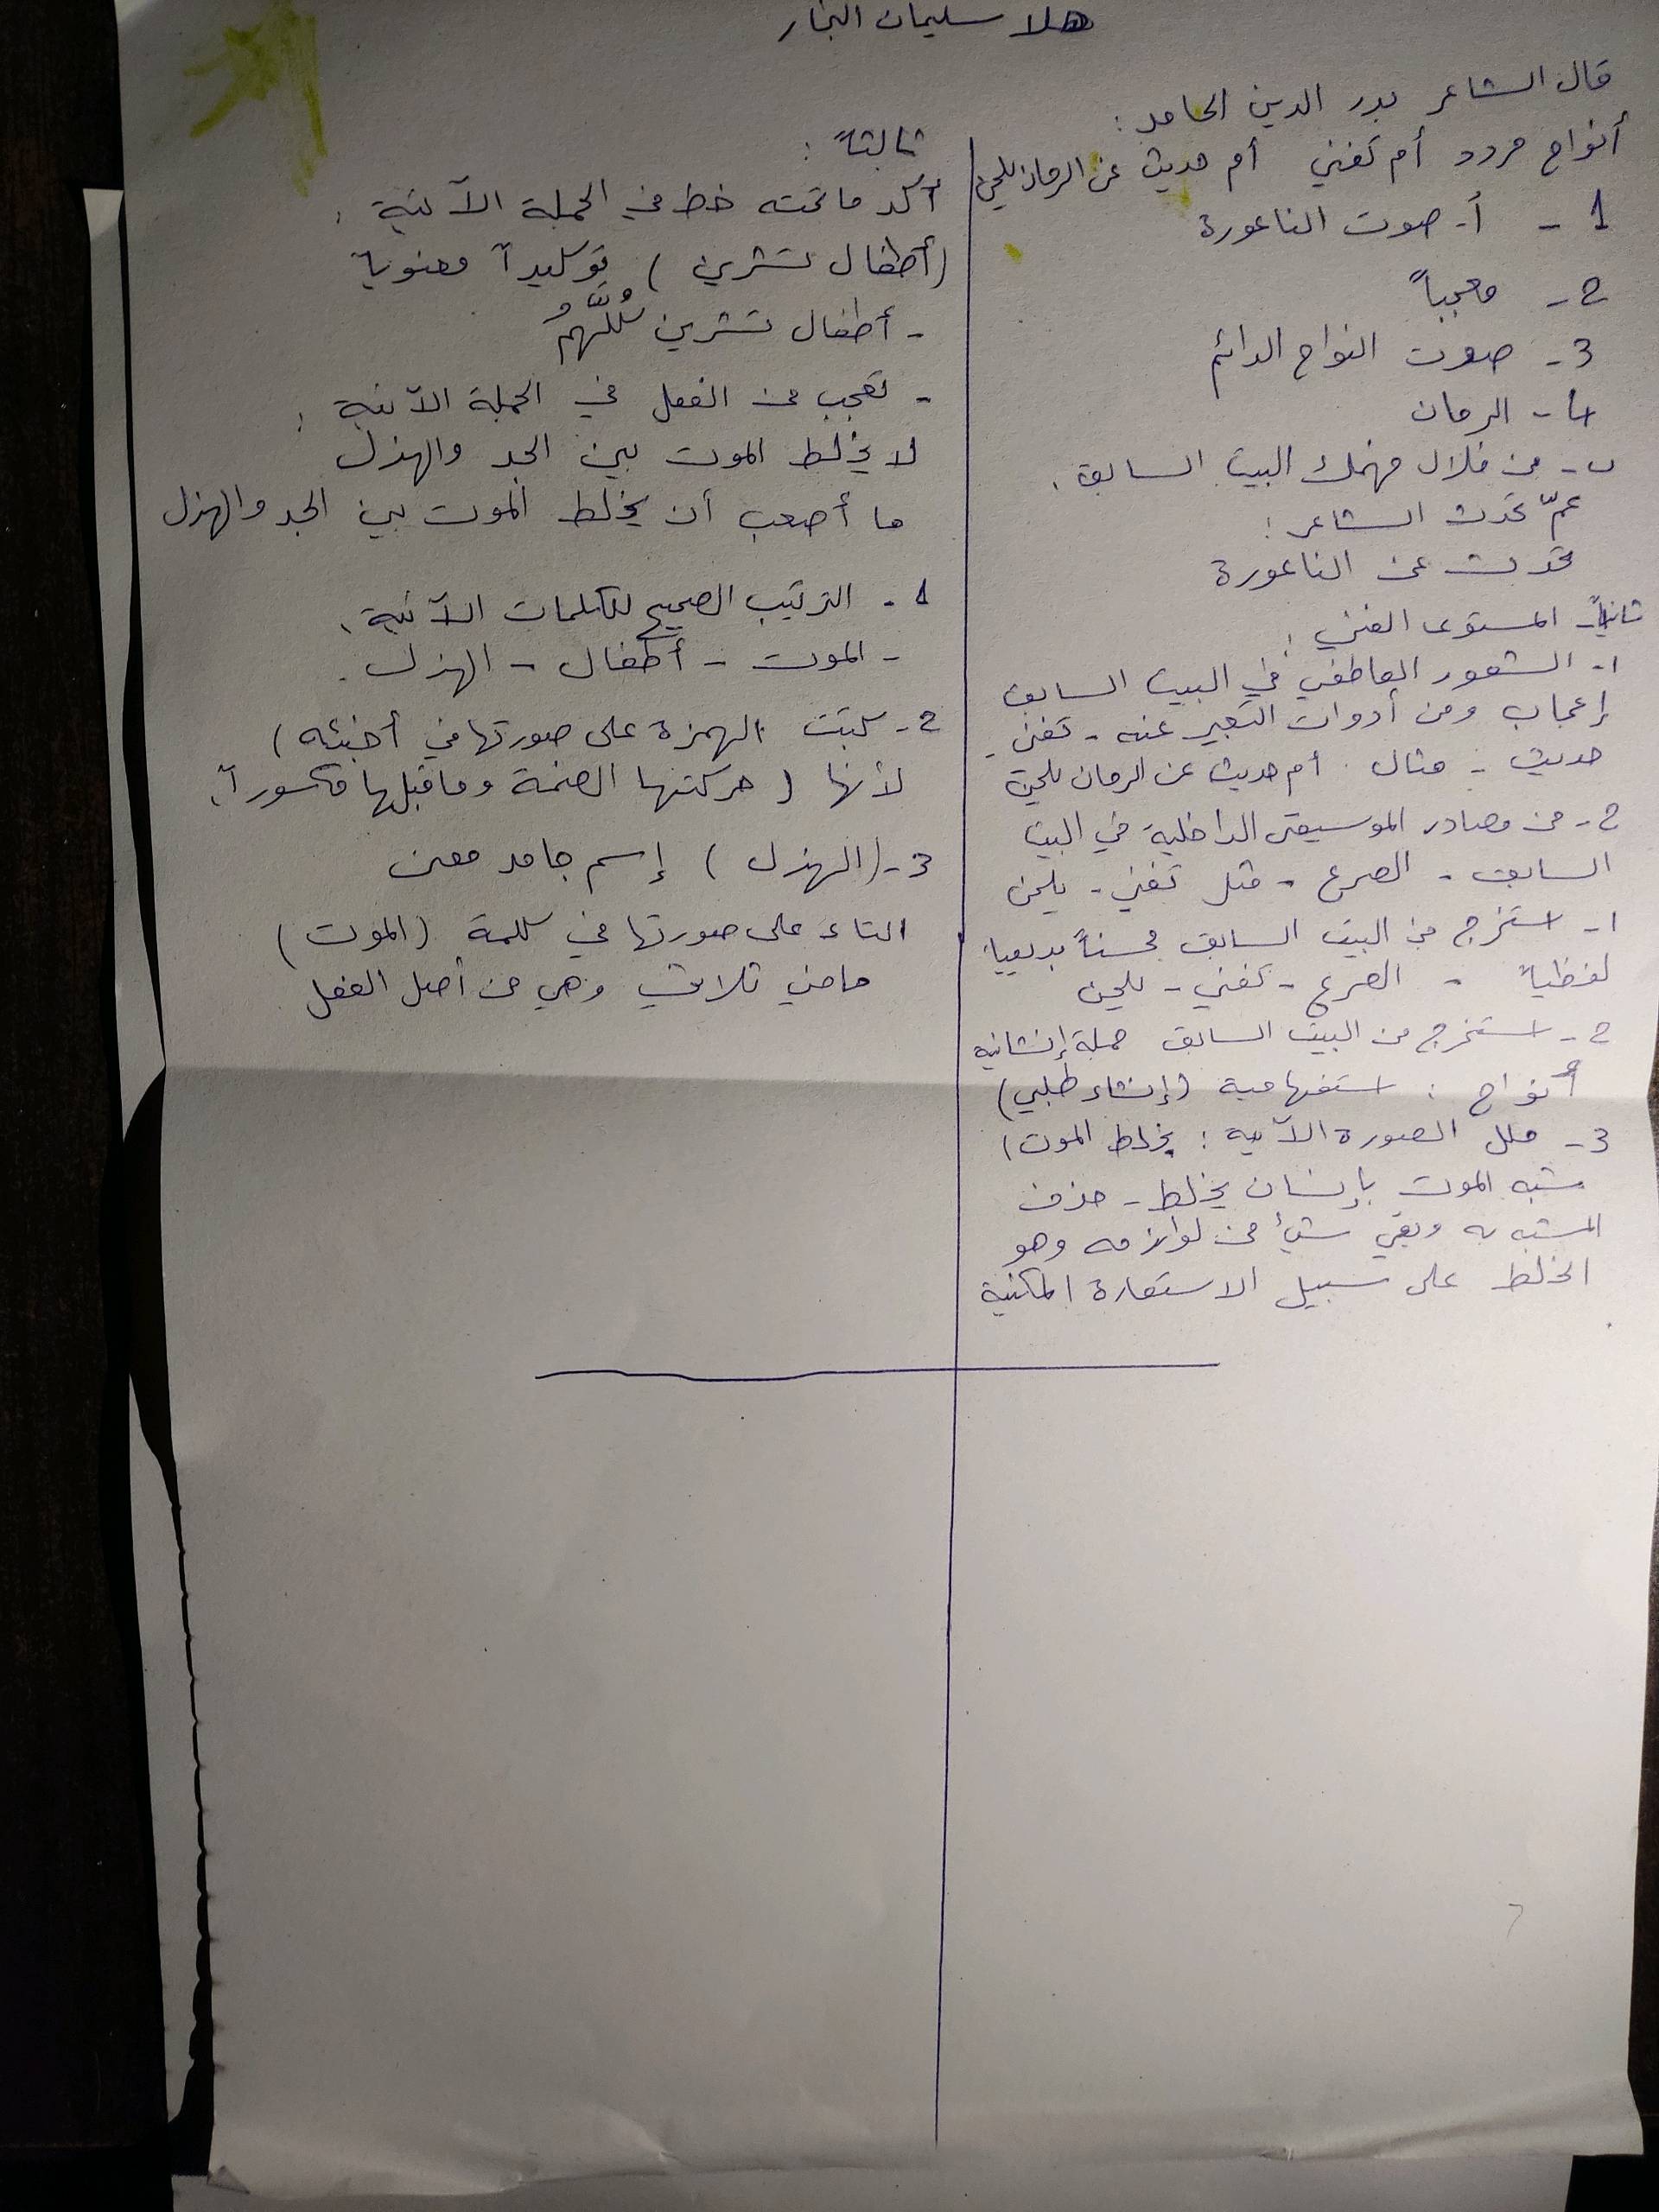 هلا سليمان النجار
قال الشاعر بدر الدين الحامد :
أنواح مردد أم تغني أم حديث عن الزمان يلحن
1 - أ - صوت الناعورة
2 - معجباً
3 - صوت النواح الدائم
4 - الزمان
ب - من خلال فهمك البيت السابق .
عمّ تحدث الشاعر :
تحدث عن الناعورة
ثانياً - المستوى الفني :
1 - الشعور العاطفي في البيت السابق
إعجاب ومن أدوات التعبير عنه - تغني -
حديث - مثال . أم حديث عن الزمان يلحن
2 - من مصادر الموسيقى الداخلية في البيت
السابق - الصرع - مثل تغني - يلحن
1 - استخرج من البيت السابق محسناً بديعياً
لفظياً - الصرع - تغني - يلحن
2 - استخرج من البيت السابق جملة إنشائية
أنواح : استفهامية (إنشاء طلبي)
3 - حلل الصورة الآتية : يخلط الموت)
شبه الموت بإنسان يخلط - حذف
المشبه به وبقي شيء من لوازمه وهو
الخلط على سبيل الاستعارة المكنية
ثالثاً :
أكد ما تحته خط في الجملة الآتية :
(أطفال تشرين ) توكيداً معنوياً
- أطفال تشرين كُلُّهُمُ
- تعجب من الفعل في الجملة الآتية :
لا يخلط الموت بين الجد والهزل
ما أصعب أن يخلط الموت بين الجد والهزل
1 - الترتيب الصحيح للكلمات الآتية .
- الموت - أطفال - الهزل .
2 - كتبت الهمزة على صورتها في أخبئه )
لأنها ( حركتها الضمة وما قبلها مكسوراً .
3 - (الهزل ) إسم جامد معنى
التاء على صورتها في كلمة (الموت )
ماضي ثلاثي وهي من أصل الفعل